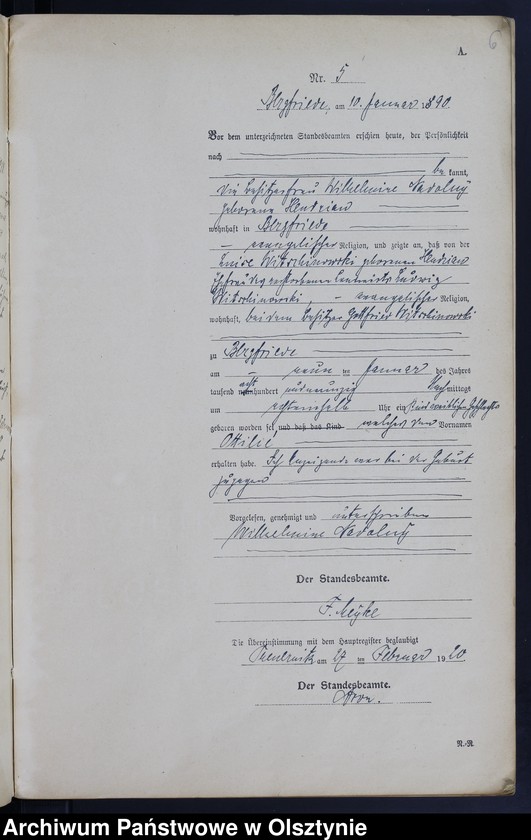 6
A.
Nr. 5
Bergfriede, am 10. Januar 1890.
Vor dem unterzeichneten Standesbeamten erschien heute, der Persönlichkeit
nach
be kannt,
die Besitzerfrau Wilhelmine Nadolny
geborene Hendrian
wohnhaft in Bergfriede
evangelischer Religion, und zeigte an, daß von der
Luise Witschinowski geborenen Hendrian
Ehefrau des verstorbenen Ludwig
Witschinowski, evangelischer Religion,
wohnhaft bei dem Besitzer Gottfried Witschinowski
zu Bergfriede
am neun ten Januar des Jahres
tausend acht hundert und neunzig Nach mittags
um Uhr ein Kind weiblichen Geschlechts
geboren worden sei, und daß das Kind welches den Vornamen
Ottilie
erhalten habe. Ich Anzeigende war bei der Geburt
zugegen
Vorgelesen, genehmigt und unterschrieben
Wilhelmine Nadolny
Der Standesbeamte.
F.
Die Übereinstimmung mit dem Hauptregister beglaubigt
am 27 ten Februar 1920.
Der Standesbeamte.
N.-R.
Archiwum Państwowe w Olsztynie